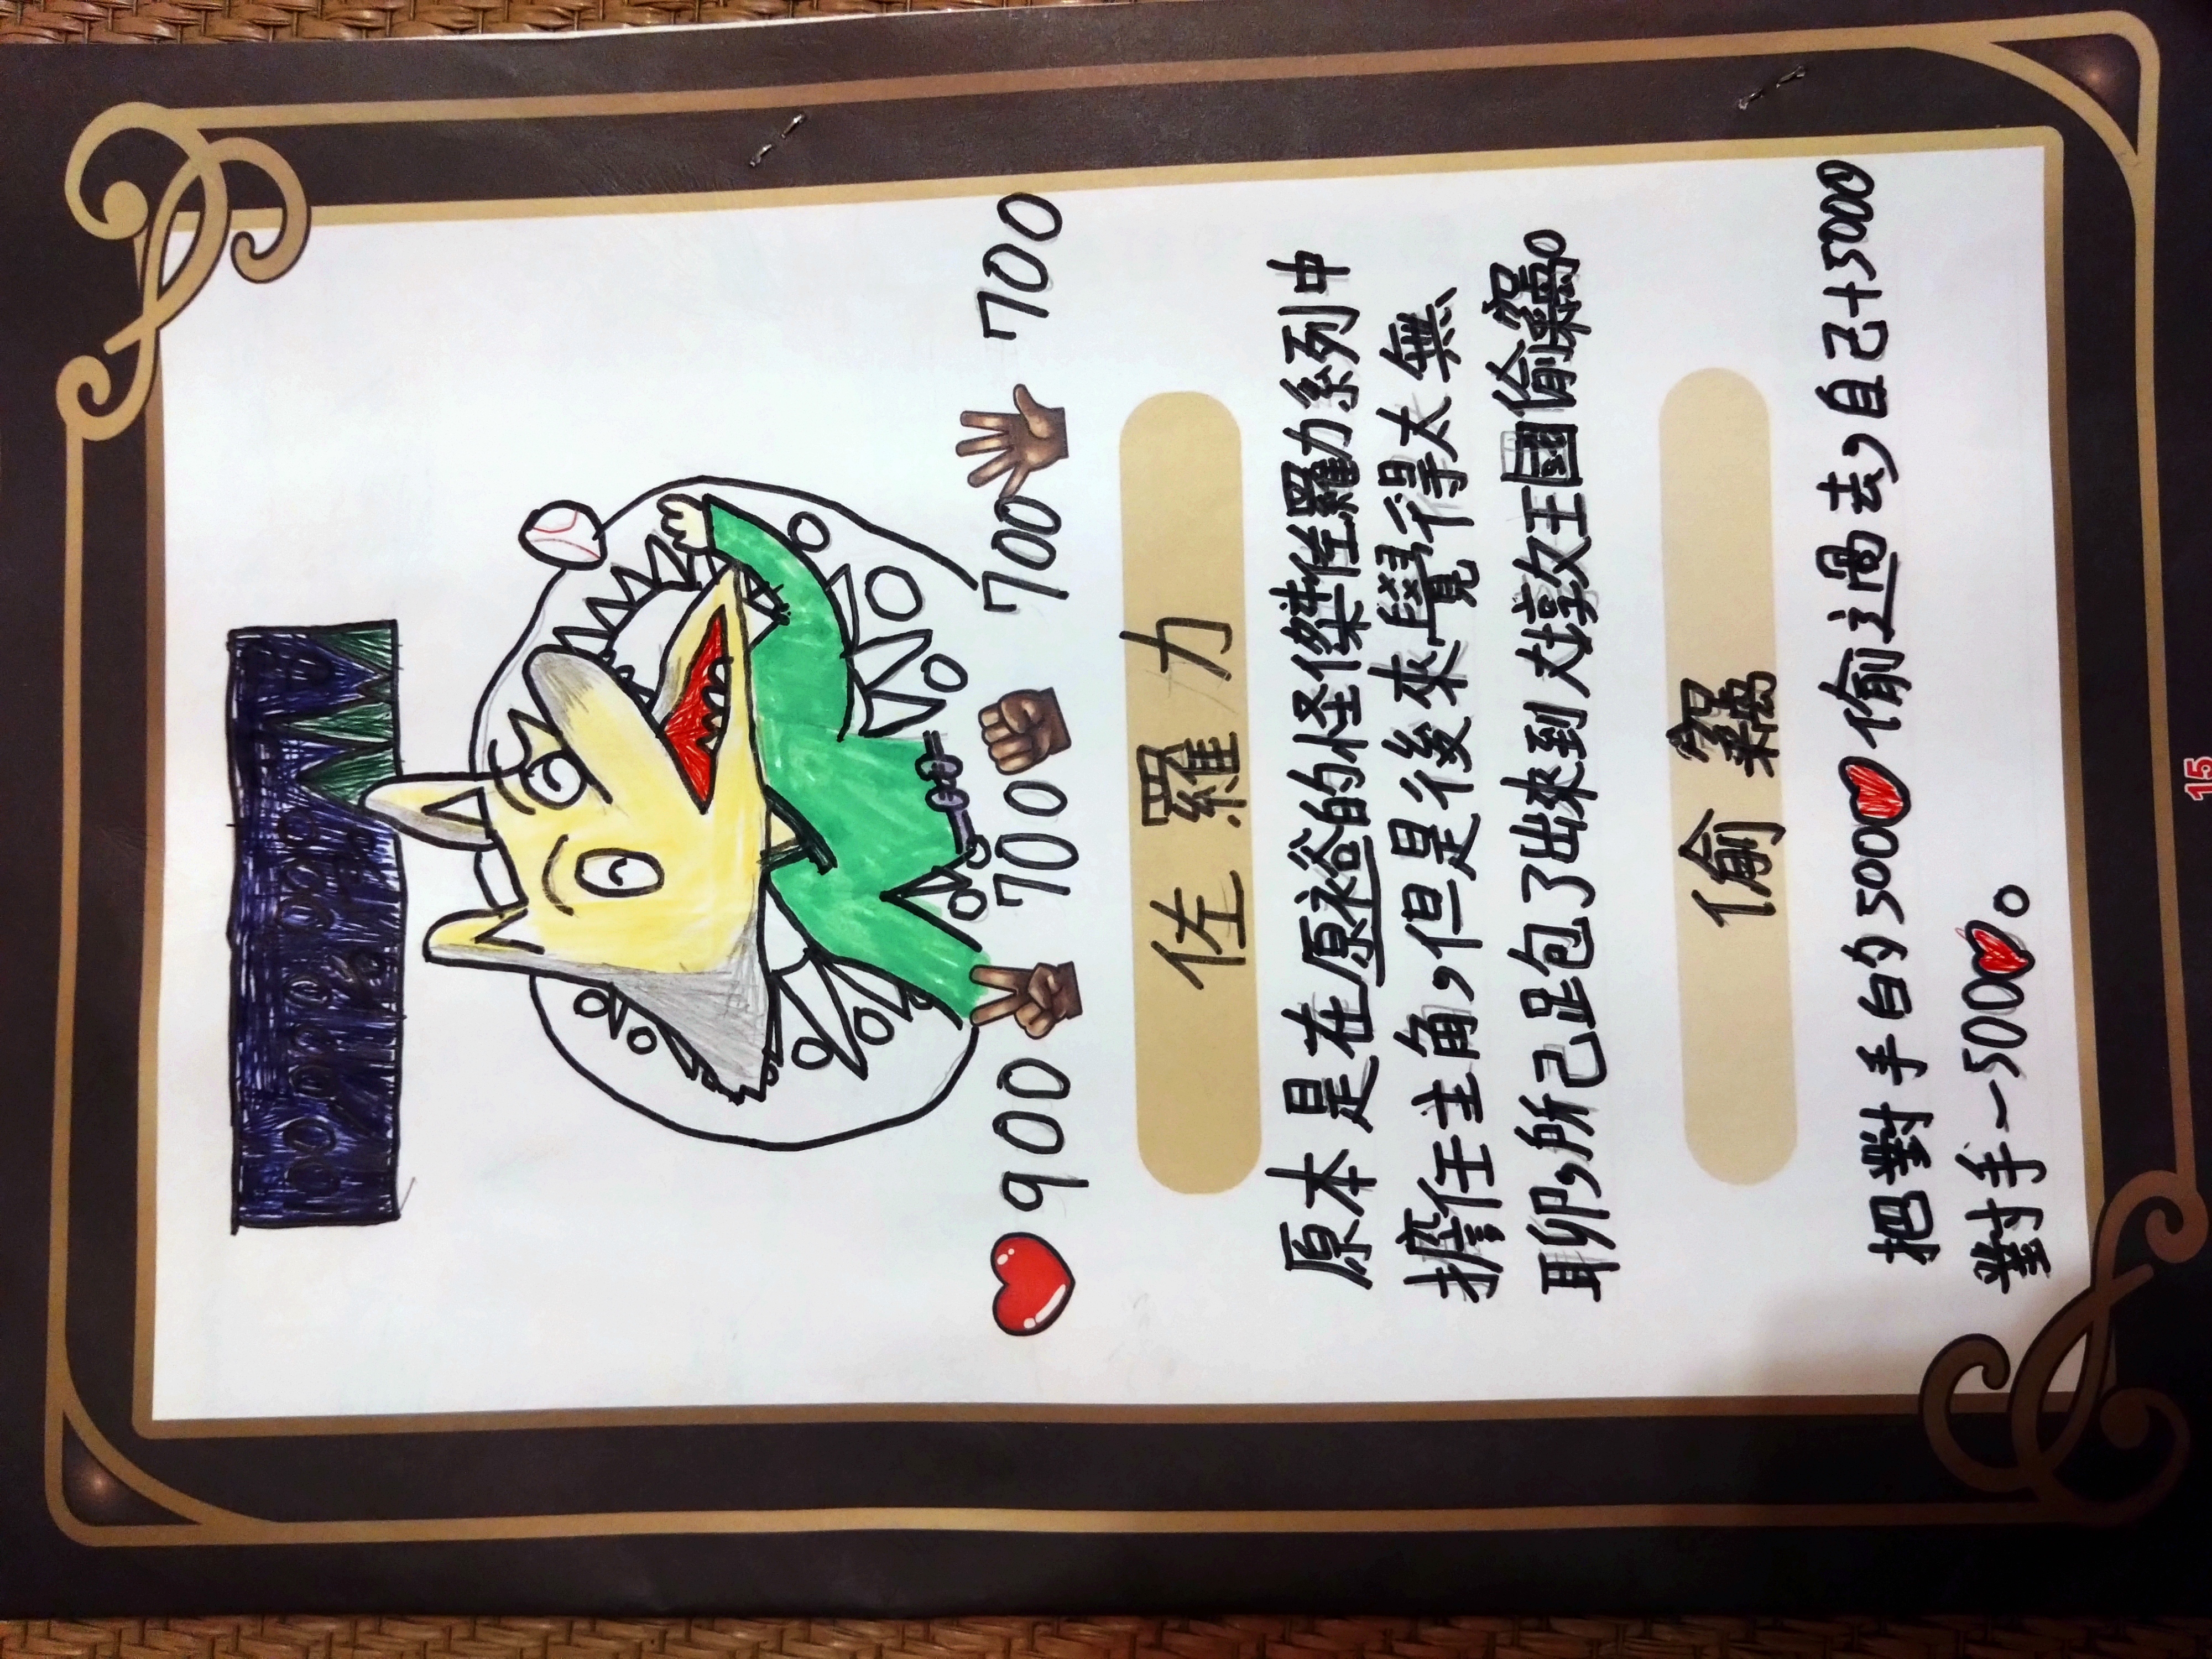 900 700 700 700
佐羅力
原本是在原裕的怪傑佐羅力系列中
擔任主角,但是後來覺得太無
聊,所己跑了出來到大敦王國偷竊。
偷竊
把對手的500❤偷過去,自己+5000
對手-500❤。
15